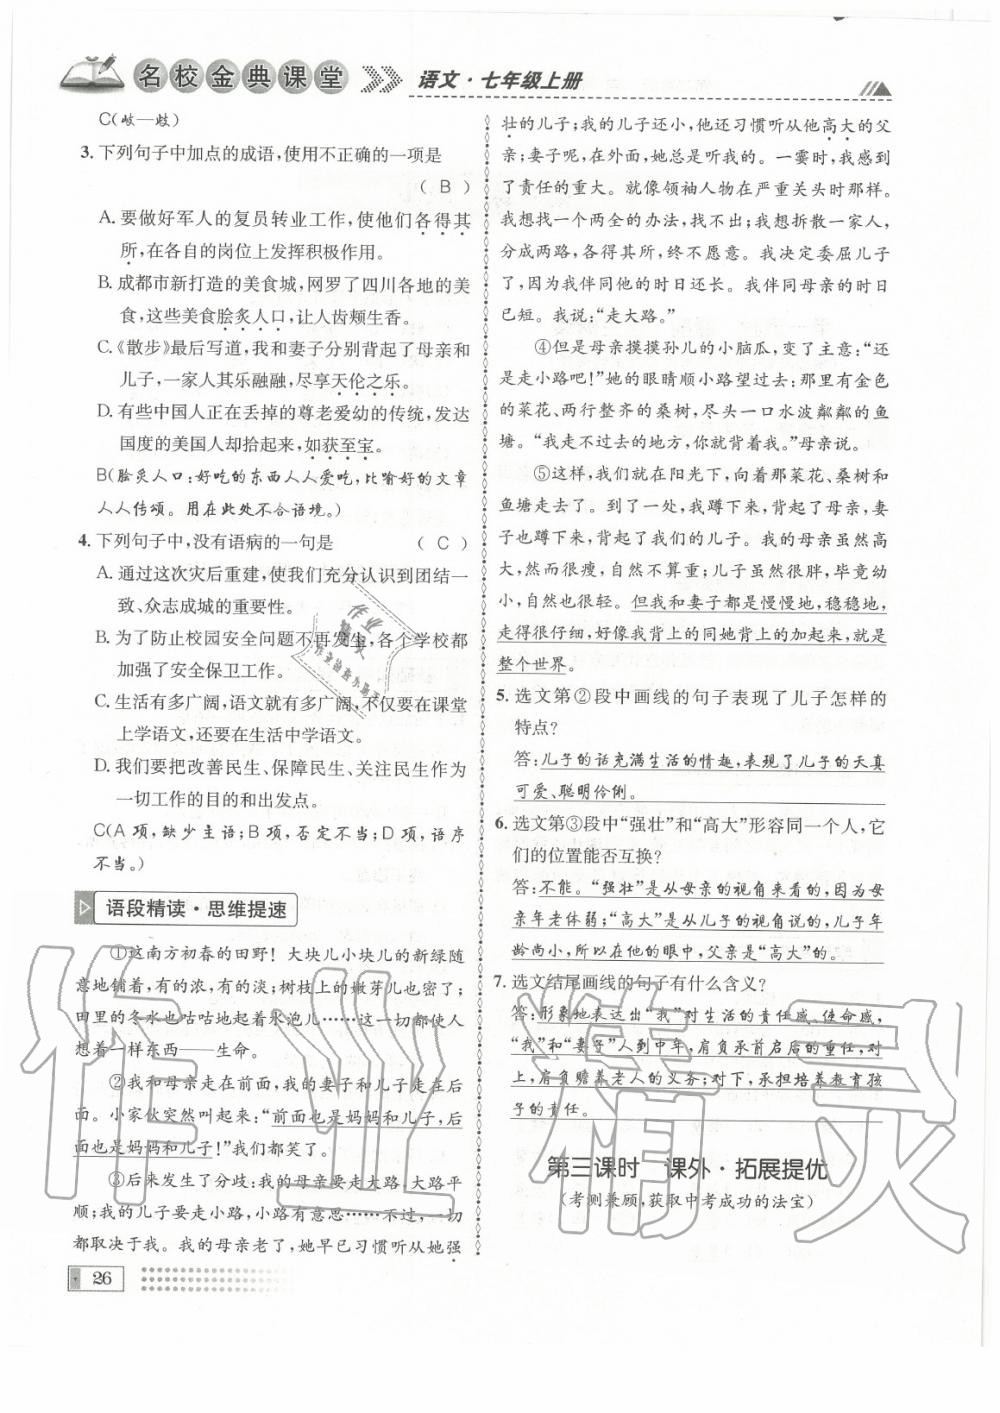 名校金典课堂 语文·七年级上册
C(歧—歧)
3. 下列句子中加点的成语,使用不正确的一项是
( B )
A. 要做好军人的复员转业工作,使他们各得其
所,在各自的岗位上发挥积极作用。
B. 成都市新打造的美食城,网罗了四川各地的美
食,这些美食脍炙人口,让人齿颊生香。
C.《散步》最后写道,我和妻子分别背起了母亲和
儿子,一家人其乐融融,尽享天伦之乐。
D. 有些中国人正在丢掉的尊老爱幼的传统,发达
国度的美国人却拾起来,如获至宝。
B(脍炙人口:好吃的东西人人爱吃,比喻好的文章
人人传颂。用在此处不合语境。)
4. 下列句子中,没有语病的一句是 ( C )
A. 通过这次灾后重建,使我们充分认识到团结一
致、众志成城的重要性。
B. 为了防止校园安全问题不再发生,各个学校都
加强了安全保卫工作。
C. 生活有多广阔,语文就有多广阔,不仅要在课堂
上学语文,还要在生活中学语文。
D. 我们要把改善民生、保障民生、关注民生作为
一切工作的目的和出发点。
C(A 项,缺少主语;B 项,否定不当;D 项,语序
不当。)
语段精读·思维提速
①这南方初春的田野!大块儿小块儿的新绿随
意地铺着,有的浓,有的淡;树枝上的嫩芽儿也密了;
田里的冬水也咕咕地起着水泡儿……这一切都使人
想着一样东西——生命。
②我和母亲走在前面,我的妻子和儿子走在后
面。小家伙突然叫起来:“前面也是妈妈和儿子,后
面也是妈妈和儿子!”我们都笑了。
③后来发生了分歧:我的母亲要走大路,大路平
顺;我的儿子要走小路,小路有意思……不过,一切
都取决于我。我的母亲老了,她早已习惯听从她强
26
壮的儿子;我的儿子还小,他还习惯听从他高大的父
亲;妻子呢,在外面,她总是听我的。一霎时,我感到
了责任的重大。就像领袖人物在严重关头时那样。
我想找一个两全的办法,找不出;我想拆散一家人,
分成两路,各得其所,终不愿意。我决定委屈儿子
了,因为我伴同他的时日还长。我伴同母亲的时日
已短。我说:“走大路。”
④但是母亲摸摸孙儿的小脑瓜,变了主意:“还
是走小路吧!”她的眼睛顺小路望过去:那里有金色
的菜花、两行整齐的桑树,尽头一口水波粼粼的鱼
塘。“我走不过去的地方,你就背着我。”母亲说。
⑤这样,我们就在阳光下,向着那菜花、桑树和
鱼塘走去了。到了一处,我蹲下来,背起了母亲,妻
子也蹲下来,背起了我们的儿子。我的母亲虽然高
大,然而很瘦,自然不算重;儿子虽然很胖,毕竟幼
小,自然也很轻。但我和妻子都是慢慢地,稳稳地,
走得很仔细,好像我背上的同她背上的加起来,就是
整个世界。
5. 选文第②段中画线的句子表现了儿子怎样的
特点?
答:儿子的话充满生活的情趣,表现了儿子的天真
可爱、聪明伶俐。
6. 选文第③段中“强壮”和“高大”形容同一个人,它
们的位置能否互换?
答:不能。“强壮”是从母亲的视角来看的,因为母
亲年老体弱;“高大”是从儿子的视角说的,儿子年
龄尚小,所以在他的眼中,父亲是“高大”的。
7. 选文结尾画线的句子有什么含义?
答:形象地表达出“我”对生活的责任感、使命感,
“我”和“妻子”人到中年,肩负承前启后的重任,对
上,肩负赡养老人的义务;对下,承担培养教育孩
子的责任。
第三课时 课外·拓展提优
(考则兼顾,获取中考成功的法宝)
作业精灵